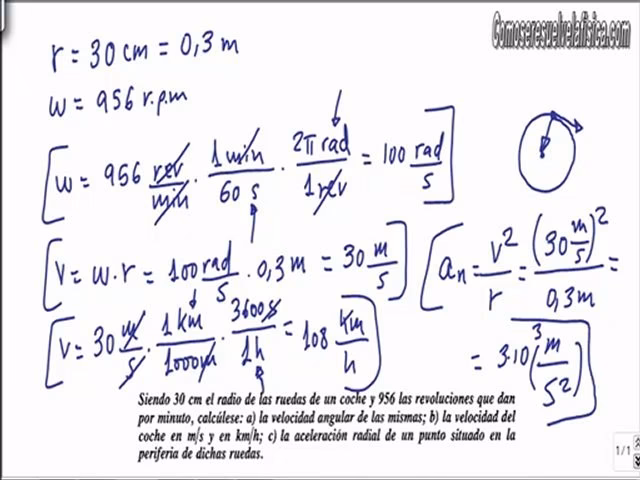 Comoseresuelvelafisica.com
r = 30 cm = 0,3 m
w = 956 r.p.m
[w = 956 rev/min · 1 min/60 s · 2π rad/1 rev = 100 rad/s]
[v = w · r = 100 rad/s · 0,3 m = 30 m/s]
[v = 30 m/s · 1 km/1000 m · 3600 s/1 h = 108 km/h]
[aₙ = v²/r = (30 m/s)²/0,3 m =
= 3·10³ (m/s²)]
Siendo 30 cm el radio de las ruedas de un coche y 956 las revoluciones que dan
por minuto, calcúlese: a) la velocidad angular de las mismas; b) la velocidad del
coche en m/s y en km/h; c) la aceleración radial de un punto situado en la
periferia de dichas ruedas.
1/1